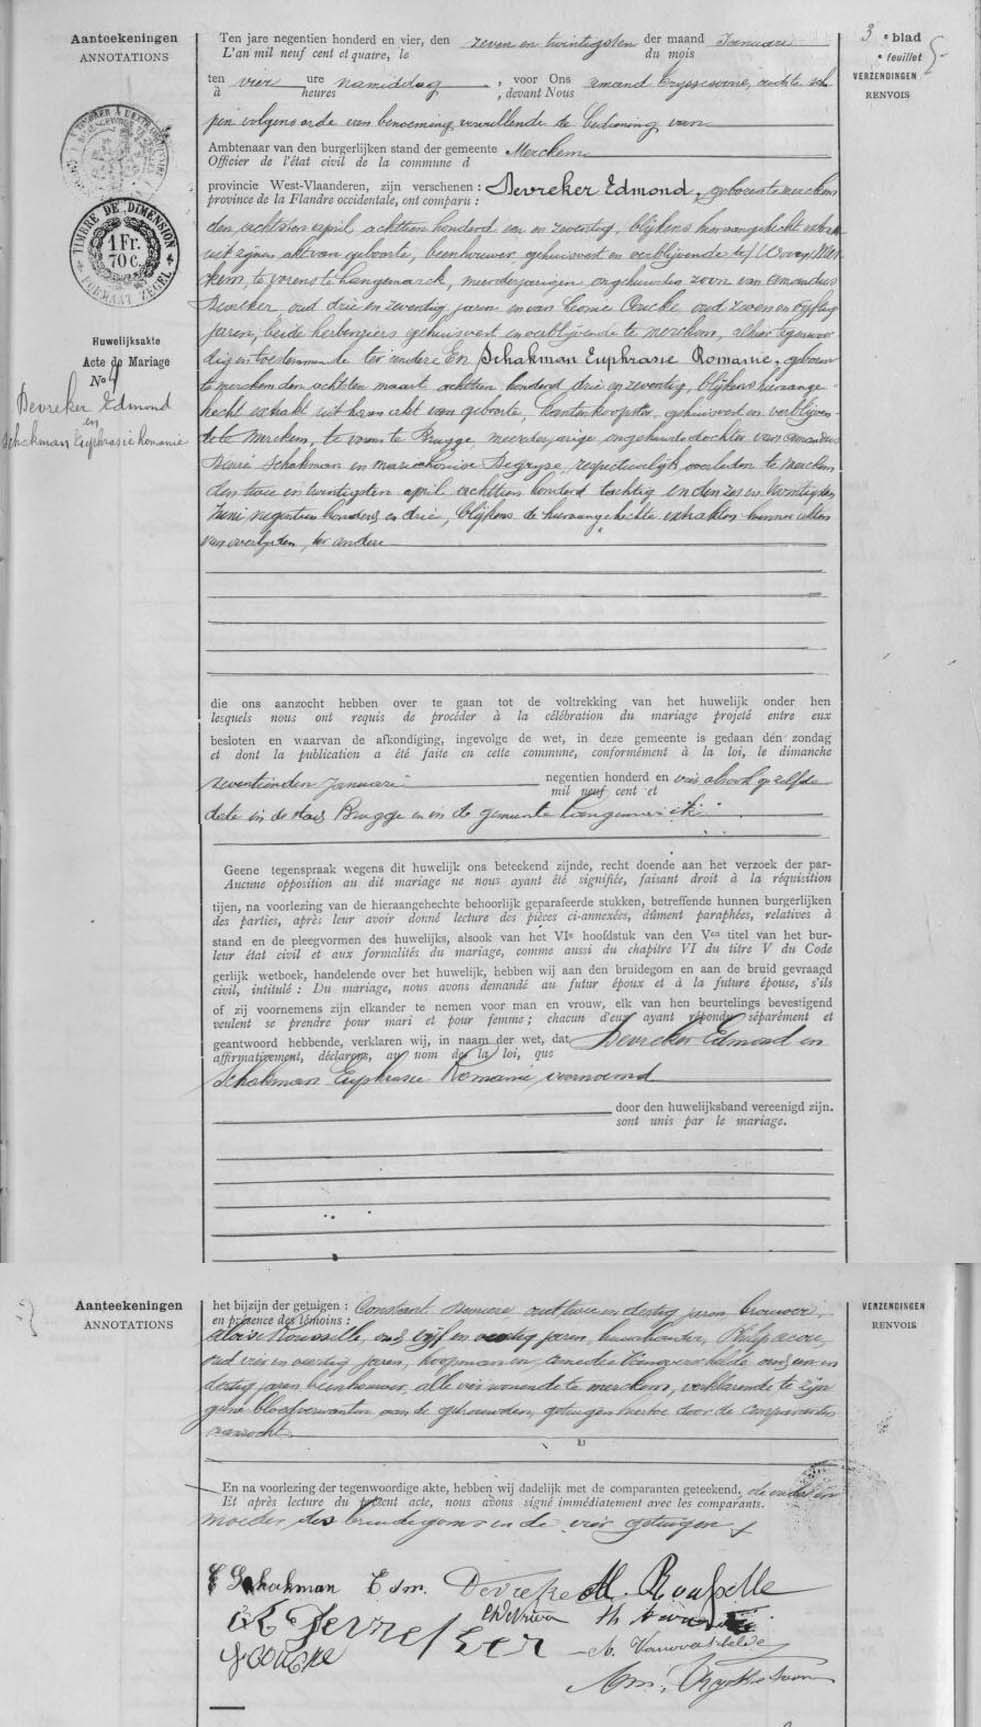 Aanteekeningen
ANNOTATIONS
3 e blad
e feuillet
VERZENDINGEN
RENVOIS
Ten jare negentien honderd en vier, den zeven en twintigsten der maand Januari
L'an mil neuf cent et quatre, le du mois
ten vier ure namiddag, voor Ons Amand
à heures , devant Nous
pen volgens orde van benoeming, vervullende de bediening van
Ambtenaar van den burgerlijken stand der gemeente Merckem
Officier de l'état civil de la commune d
provincie West-Vlaanderen, zijn verschenen : Devreker Edmond, geboren te Merckem
province de la Flandre occidentale, ont comparu :
den april achttien honderd en zeventig, blijkens hieraangehecht
uit zijnen akt van geboorte, beenhouwer, gehuisvest en verblijvende te
kem, te vorens te Langemarck, meerderjarigen ongehuwden zoon van Amandus
Devreker, oud drie en zeventig jaren en van Leonie Coucke, oud zeven en vijftig
jaren, beide herbergiers gehuisvest en verblijvende te Merckem, alhier tegenwoor
dig en toestemmende ter eendere En Schakman Euphrasie Romanie, geboren
te Merckem den achtsten maart achttien honderd drie en zeventig, blijkens hieraange
hecht extrakt uit haren akt van geboorte, kantenkoopster, gehuisvest en verblijven
de te Merckem, te vorens te Brugge, meerderjarige ongehuwde dochter van Amandus
Schakman en Degryse, respectievelijk overleden te Merckem
den twee en twintigsten april achttien honderd tachtig en den zes en twintigsten
Juni negentien honderd en drie, blijkens de hieraangehechte extrakten hunner akten
van overlijden, ter andere
TIMBRE DE DIMENSION
1 Fr.
70 C.
FORMAAT ZEGEL
Huwelijksakte
Acte de Mariage
No 4
Devreker Edmond
en
Schakman Euphrasie Romanie
die ons aanzocht hebben over te gaan tot de voltrekking van het huwelijk onder hen
lesquels nous ont requis de procéder à la célébration du mariage projeté entre eux
besloten en waarvan de afkondiging, ingevolge de wet, in deze gemeente is gedaan den zondag
et dont la publication a été faite en cette commune, conformément à la loi, le dimanche
zeventienden Januari negentien honderd en vier alsook op zelfde
mil neuf cent et
date in de stad Brugge en in de gemeente Langemarck
Geene tegenspraak wegens dit huwelijk ons beteekend zijnde, recht doende aan het verzoek der par-
Aucune opposition au dit mariage ne nous ayant été signifiée, faisant droit à la réquisition
tijen, na voorlezing van de hieraangehechte behoorlijk geparafeerde stukken, betreffende hunnen burgerlijken
des parties, après leur avoir donné lecture des pièces ci-annexées, dûment paraphées, relatives à
stand en de pleegvormen des huwelijks, alsook van het VIe hoofdstuk van den Ven titel van het bur-
leur état civil et aux formalités du mariage, comme aussi du chapitre VI du titre V du Code
gerlijk wetboek, handelende over het huwelijk, hebben wij aan den bruidegom en aan de bruid gevraagd
civil, intitulé : Du mariage, nous avons demandé au futur époux et à la future épouse, s'ils
of zij voornemens zijn elkander te nemen voor man en vrouw, elk van hen beurtelings bevestigend
veulent se prendre pour mari et pour femme ; chacun d'eux ayant répondu séparément et
geantwoord hebbende, verklaren wij, in naam der wet, dat Devreker Edmond en
affirmativement, déclarons, au nom de la loi, que
Schakman Euphrasie Romanie voornoemd
door den huwelijksband vereenigd zijn.
sont unis par le mariage.
Aanteekeningen
ANNOTATIONS
VERZENDINGEN
RENVOIS
het bijzijn der getuigen : Constant oud twee en dertig jaren, brouwer,
en présence des témoins :
Aloïse Rousselle, oud vijf en jaren,
oud vier en veertig jaren, koopman en oud een en
dertig jaren beenhouwer, alle vier wonende te Merckem, verklarende te zijn
gene bloedverwanten aan de gehuwden, getuigen hiertoe door de comparanten
aanzocht
En na voorlezing der tegenwoordige akte, hebben wij dadelijk met de comparanten geteekend, de vader en
Et après lecture du présent acte, nous avons signé immédiatement avec les comparants.
moeder des bruidegoms en de vier getuigen
E Schakman Edm. Devreker Al. Rousselle
Devreker
Coucke